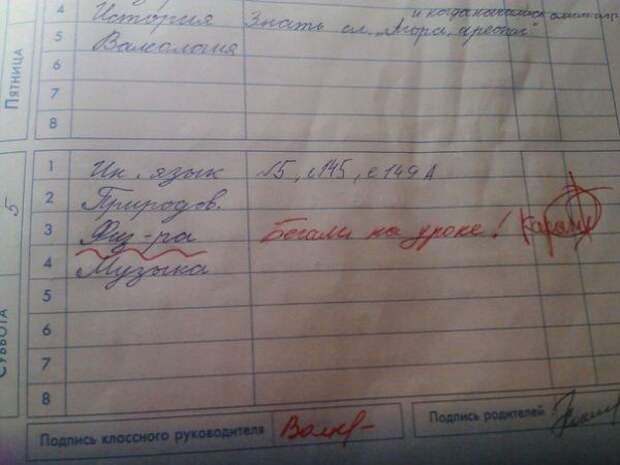 и когда
4 История Знать сл. "Агора, ареопаг"
ПЯТНИЦА
5 Валеология
6
7
8
5
СУББОТА
1 Ин. язык №5, с 145, с 149 А
2 Природов.
3 Физ-ра Бегали на уроке!
4 Музыка
5
6
7
8
Подпись классного руководителя
Подпись родителей